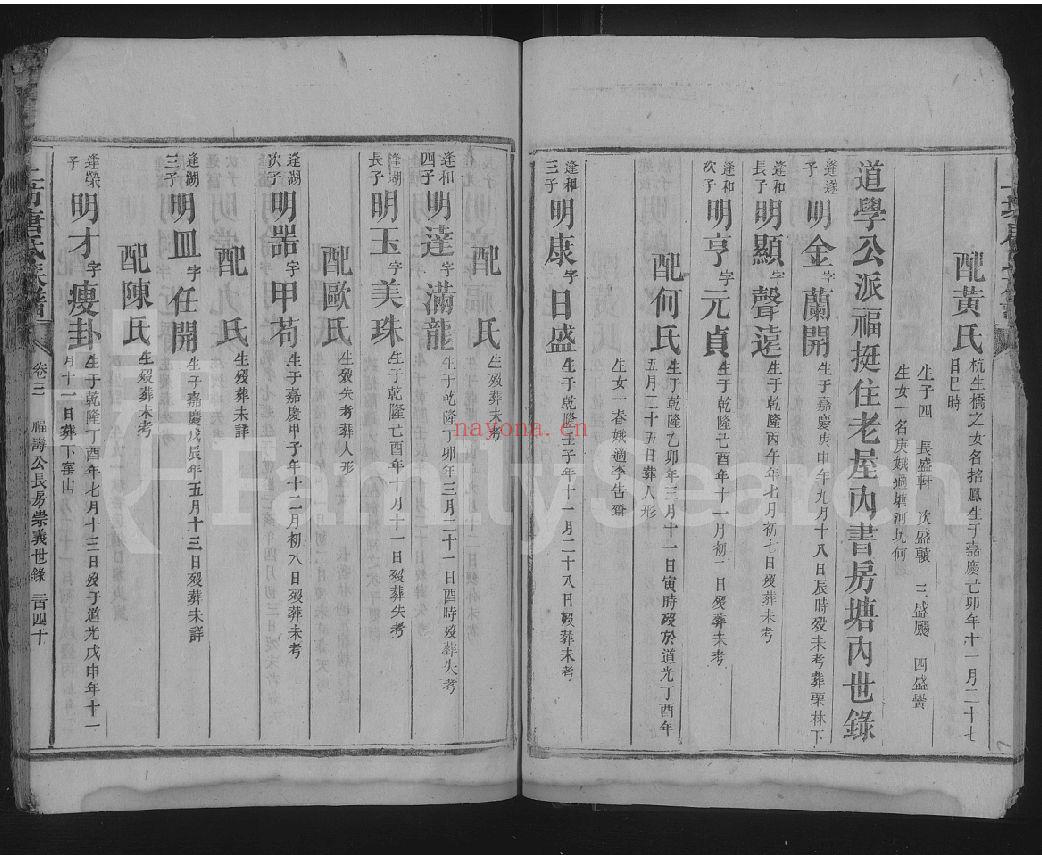 配黃氏 杭生橋之女名招鳳生于嘉慶己卯年十一月二十七
日巳時
生子四 長盛軒 次盛驥 三盛颺 四盛黌
生女一名庚娥適
道學公派福挺住老屋內書房塘內世錄
逢遂子 明金 字蘭開 生于嘉慶庚申年九月十八日辰時歿未考葬栗林下
逢和長子 明顯 字聲遠 生于乾隆丙午年七月初七日歿葬未考
逢和次子 明亨 字元貞 生于乾隆己酉年十一月初一日歿葬未考
配何氏 生于乾隆乙卯年三月十一日寅時歿於道光丁酉年
五月二十五日葬人形
生女一春娥適李
逢和三子 明康 字日盛 生于乾隆壬子年十一月二十八日歿葬未考
配 氏 生歿葬失考
逢和四子 明達 字滿龍 生于乾隆丁卯年三月二十一日酉時歿葬失考
逢湖長子 明玉 字美珠 生于乾隆己酉年 月十一日歿葬失考
配歐氏 生歿失考葬人形
逢湖次子 明器 字甲苟 生于嘉慶甲子年十二月初八日歿葬未考
配 氏 生歿葬未詳
逢湖三子 明皿 字任開 生于嘉慶戊辰年五月十三日歿葬未詳
配陳氏 生歿葬未考
逢榮子 明才 字瘦卦 生于乾隆丁酉年七月十三日歿于道光戊申年十一
月十一日葬下寨山
唐氏族譜 卷三 福壽公長房崇義世錄 百四十
nayona.cn
FamilySearch